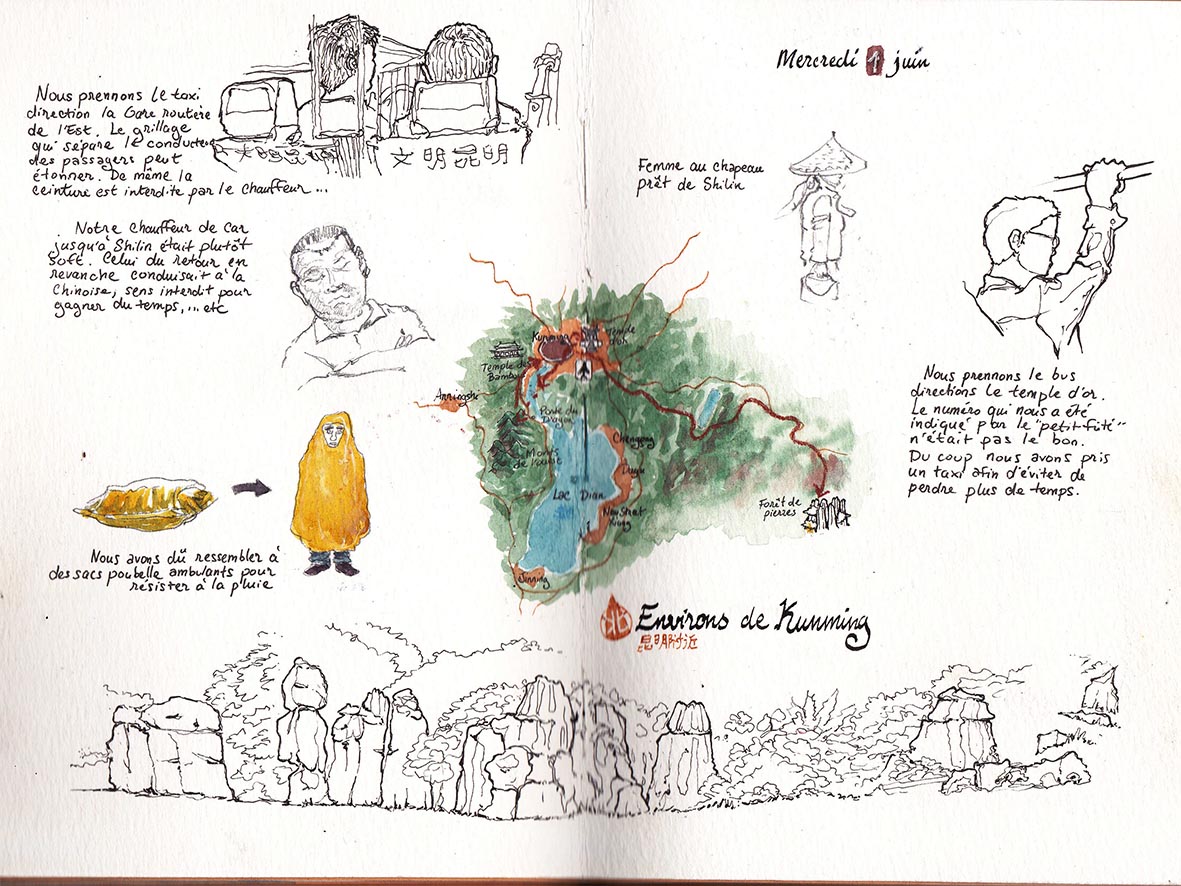 Mercredi 1 juin
Nous prennons le taxi
direction la Gare routière
de l'Est. Le grillage
qui sépare le conducteur
des passagers peut
étonner. De même la
ceinture est interdite par le chauffeur ...
文明昆明
文明昆明
Notre chauffeur de car
jusqu'à Shilin était plutôt
soft. Celui du retour en
revanche conduisait à la
Chinoise, sens interdit pour
gagner du temps, ... etc
Femme au chapeau
prêt de Shilin
Nous prennons le bus
directions le temple d'or.
Le numéro qui nous a été
indiqué par le "petit fûté"
n'était pas le bon.
Du coup nous avons pris
un taxi afin d'éviter de
perdre plus de temps.
Nous avons dû ressembler à
des sacs poubelle ambulants pour
résister à la pluie
Kunming
Temple
d'or
Temple des
Bambous
Porte du
Dragon
Monts
de l'ouest
Chengong
Lac Dian
Jinning
Forêt de
pierres
北
Environs de Kunming
昆明附近